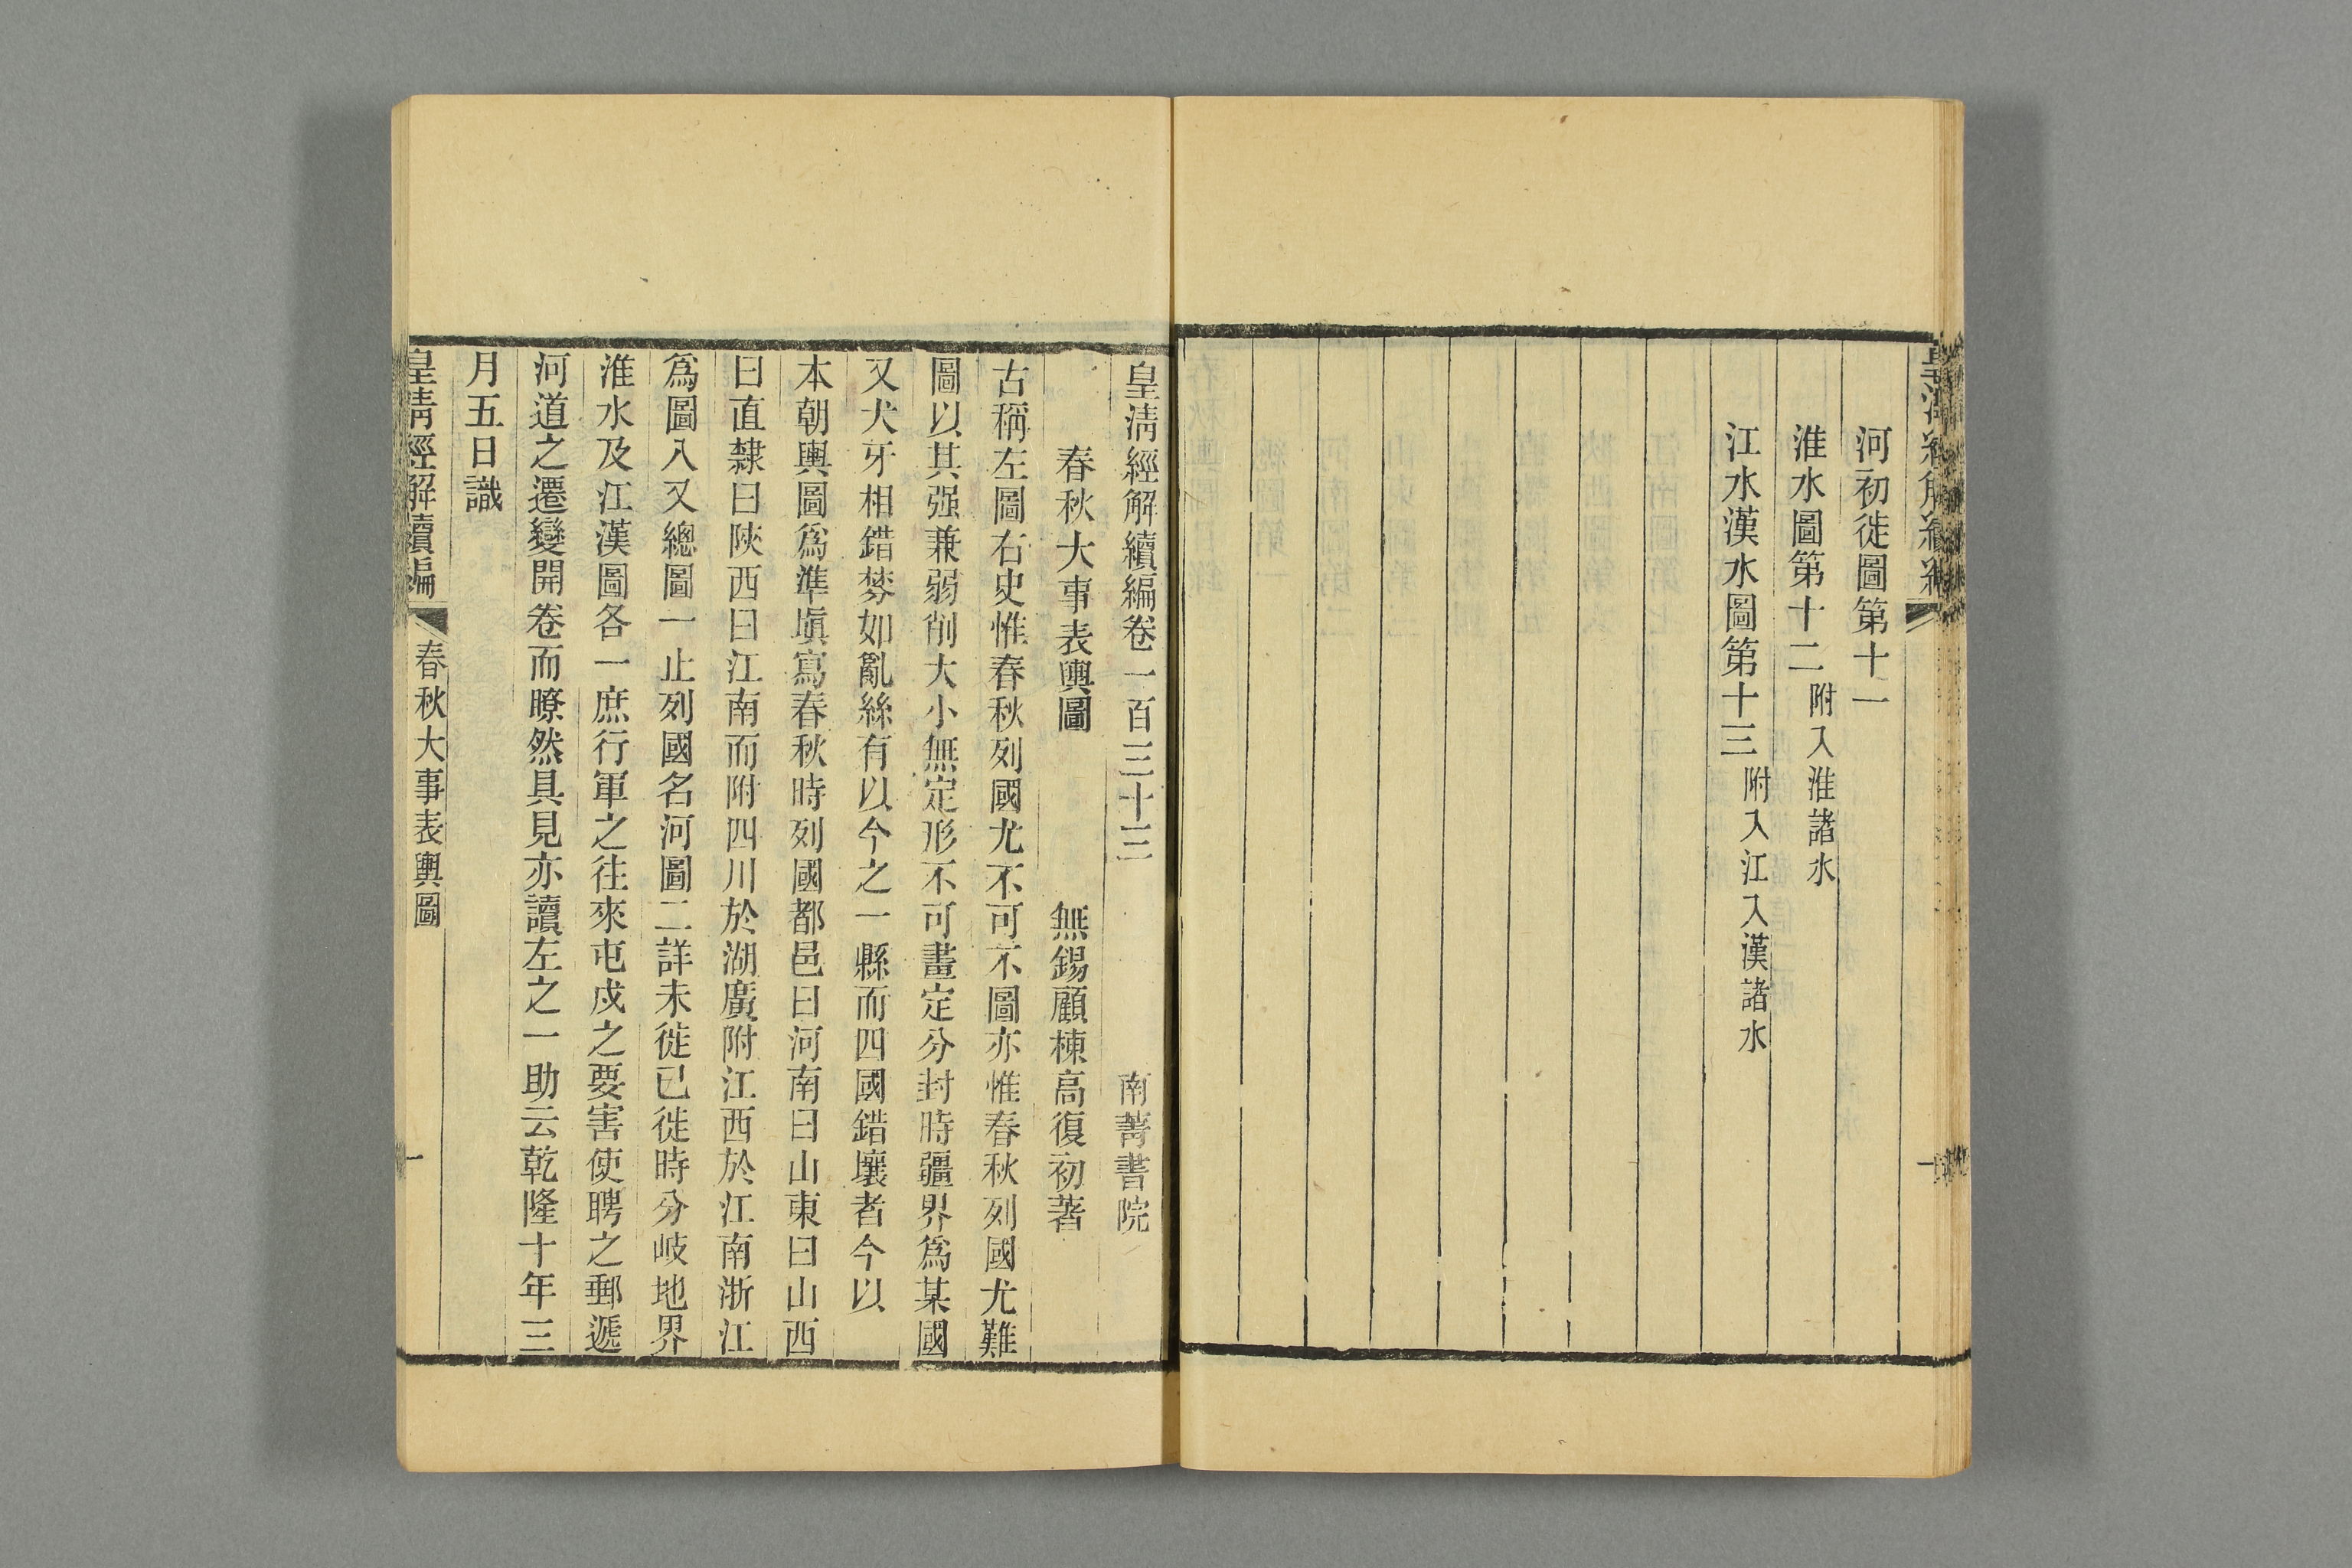 河初徙圖第十一
淮水圖第十二附入淮諸水
江水漢水圖第十三附入江入漢諸水
皇清經解續編卷一百三十三 南菁書院
春秋大事表輿圖 無錫顧棟高復初著
古稱左圖右史惟春秋列國尤不可不圖亦惟春秋列國尤難
圖以其强兼弱削大小無定形不可畫定分封時疆界爲某國
又犬牙相錯棼如亂絲有以今之一縣而四國錯壤者今以
本朝輿圖爲準塡寫春秋時列國都邑曰河南曰山東曰山西
曰直隸曰陝西曰江南而附四川於湖廣附江西於江南浙江
爲圖入又總圖一止列國名河圖二詳未徙已徙時分岐地界
淮水及江漢圖各一庶行軍之往來屯戍之要害使聘之郵遞
河道之遷變開卷而瞭然具見亦讀左之一助云乾隆十年三
月五日識
皇清經解續編 春秋大事表輿圖 一